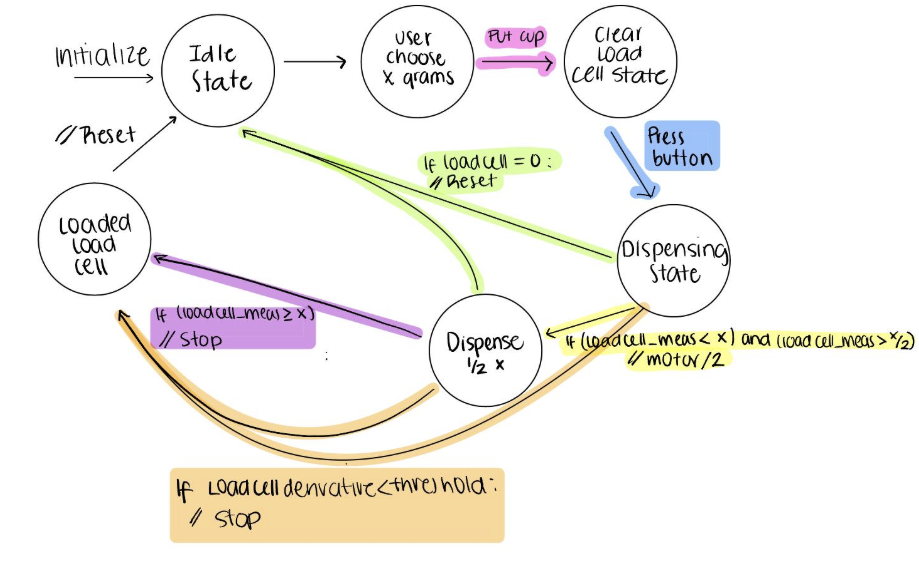 Initialize
Idle
State
User
choose
x grams
Put cup
Clear
Load
Cell State
// Reset
Press
button
If loadcell = 0 :
// Reset
Loaded
Load
Cell
Dispensing
State
If (loadcell_meas ≥ x)
// Stop
Dispense
1/2 x
If (loadcell_meas < x) and (loadcell_meas > x/2)
// motor/2
If Loadcell derivative < threshold :
// Stop